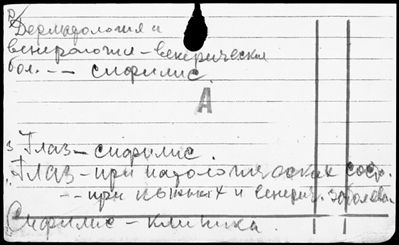 2/ Дерматология и
венерология – венерическая
бол. –– сифилис.
А
3 Глаз – сифилис.
Глаз – при патологических сост.
–– при кожных и венерич. заболева.
Сифилис – клиника.